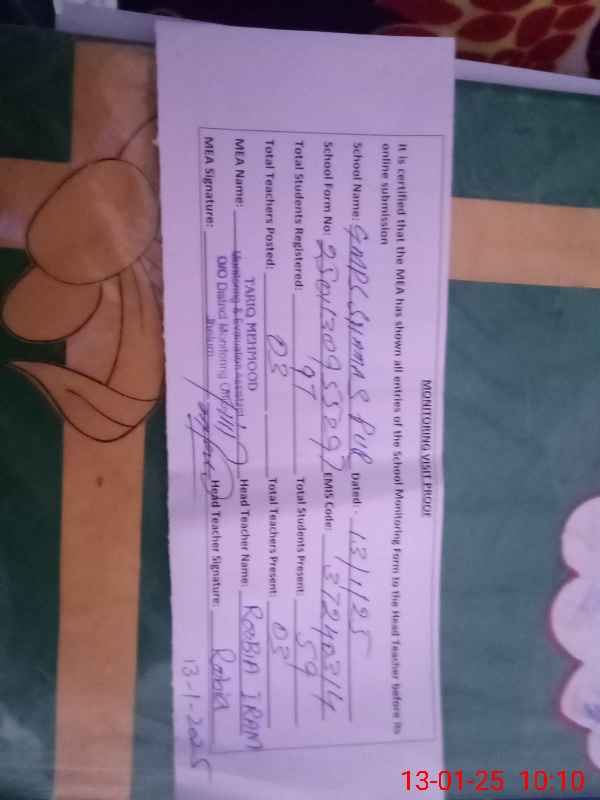 MONITORING VISIT PROOF
It is certified that the MEA has shown all entries of the School Monitoring Form to the Head Teacher before its
online submission
School Name: GMPS SHAMAS PUR Dated: - 13/1/25
School Form No: EMIS Code: 37240314
Total Students Registered: 97 Total Students Present: 59
Total Teachers Posted: 03 Total Teachers Present: 03
MEA Name: TARIQ MEHMOOD Head Teacher Name: ROOBIA IRAM
Monitoring & Evaluation Assistant
O/O District Monitoring Officer
Jhelum
MEA Signature: Head Teacher Signature: Roobia
13-1-2025
13-01-25 10:10